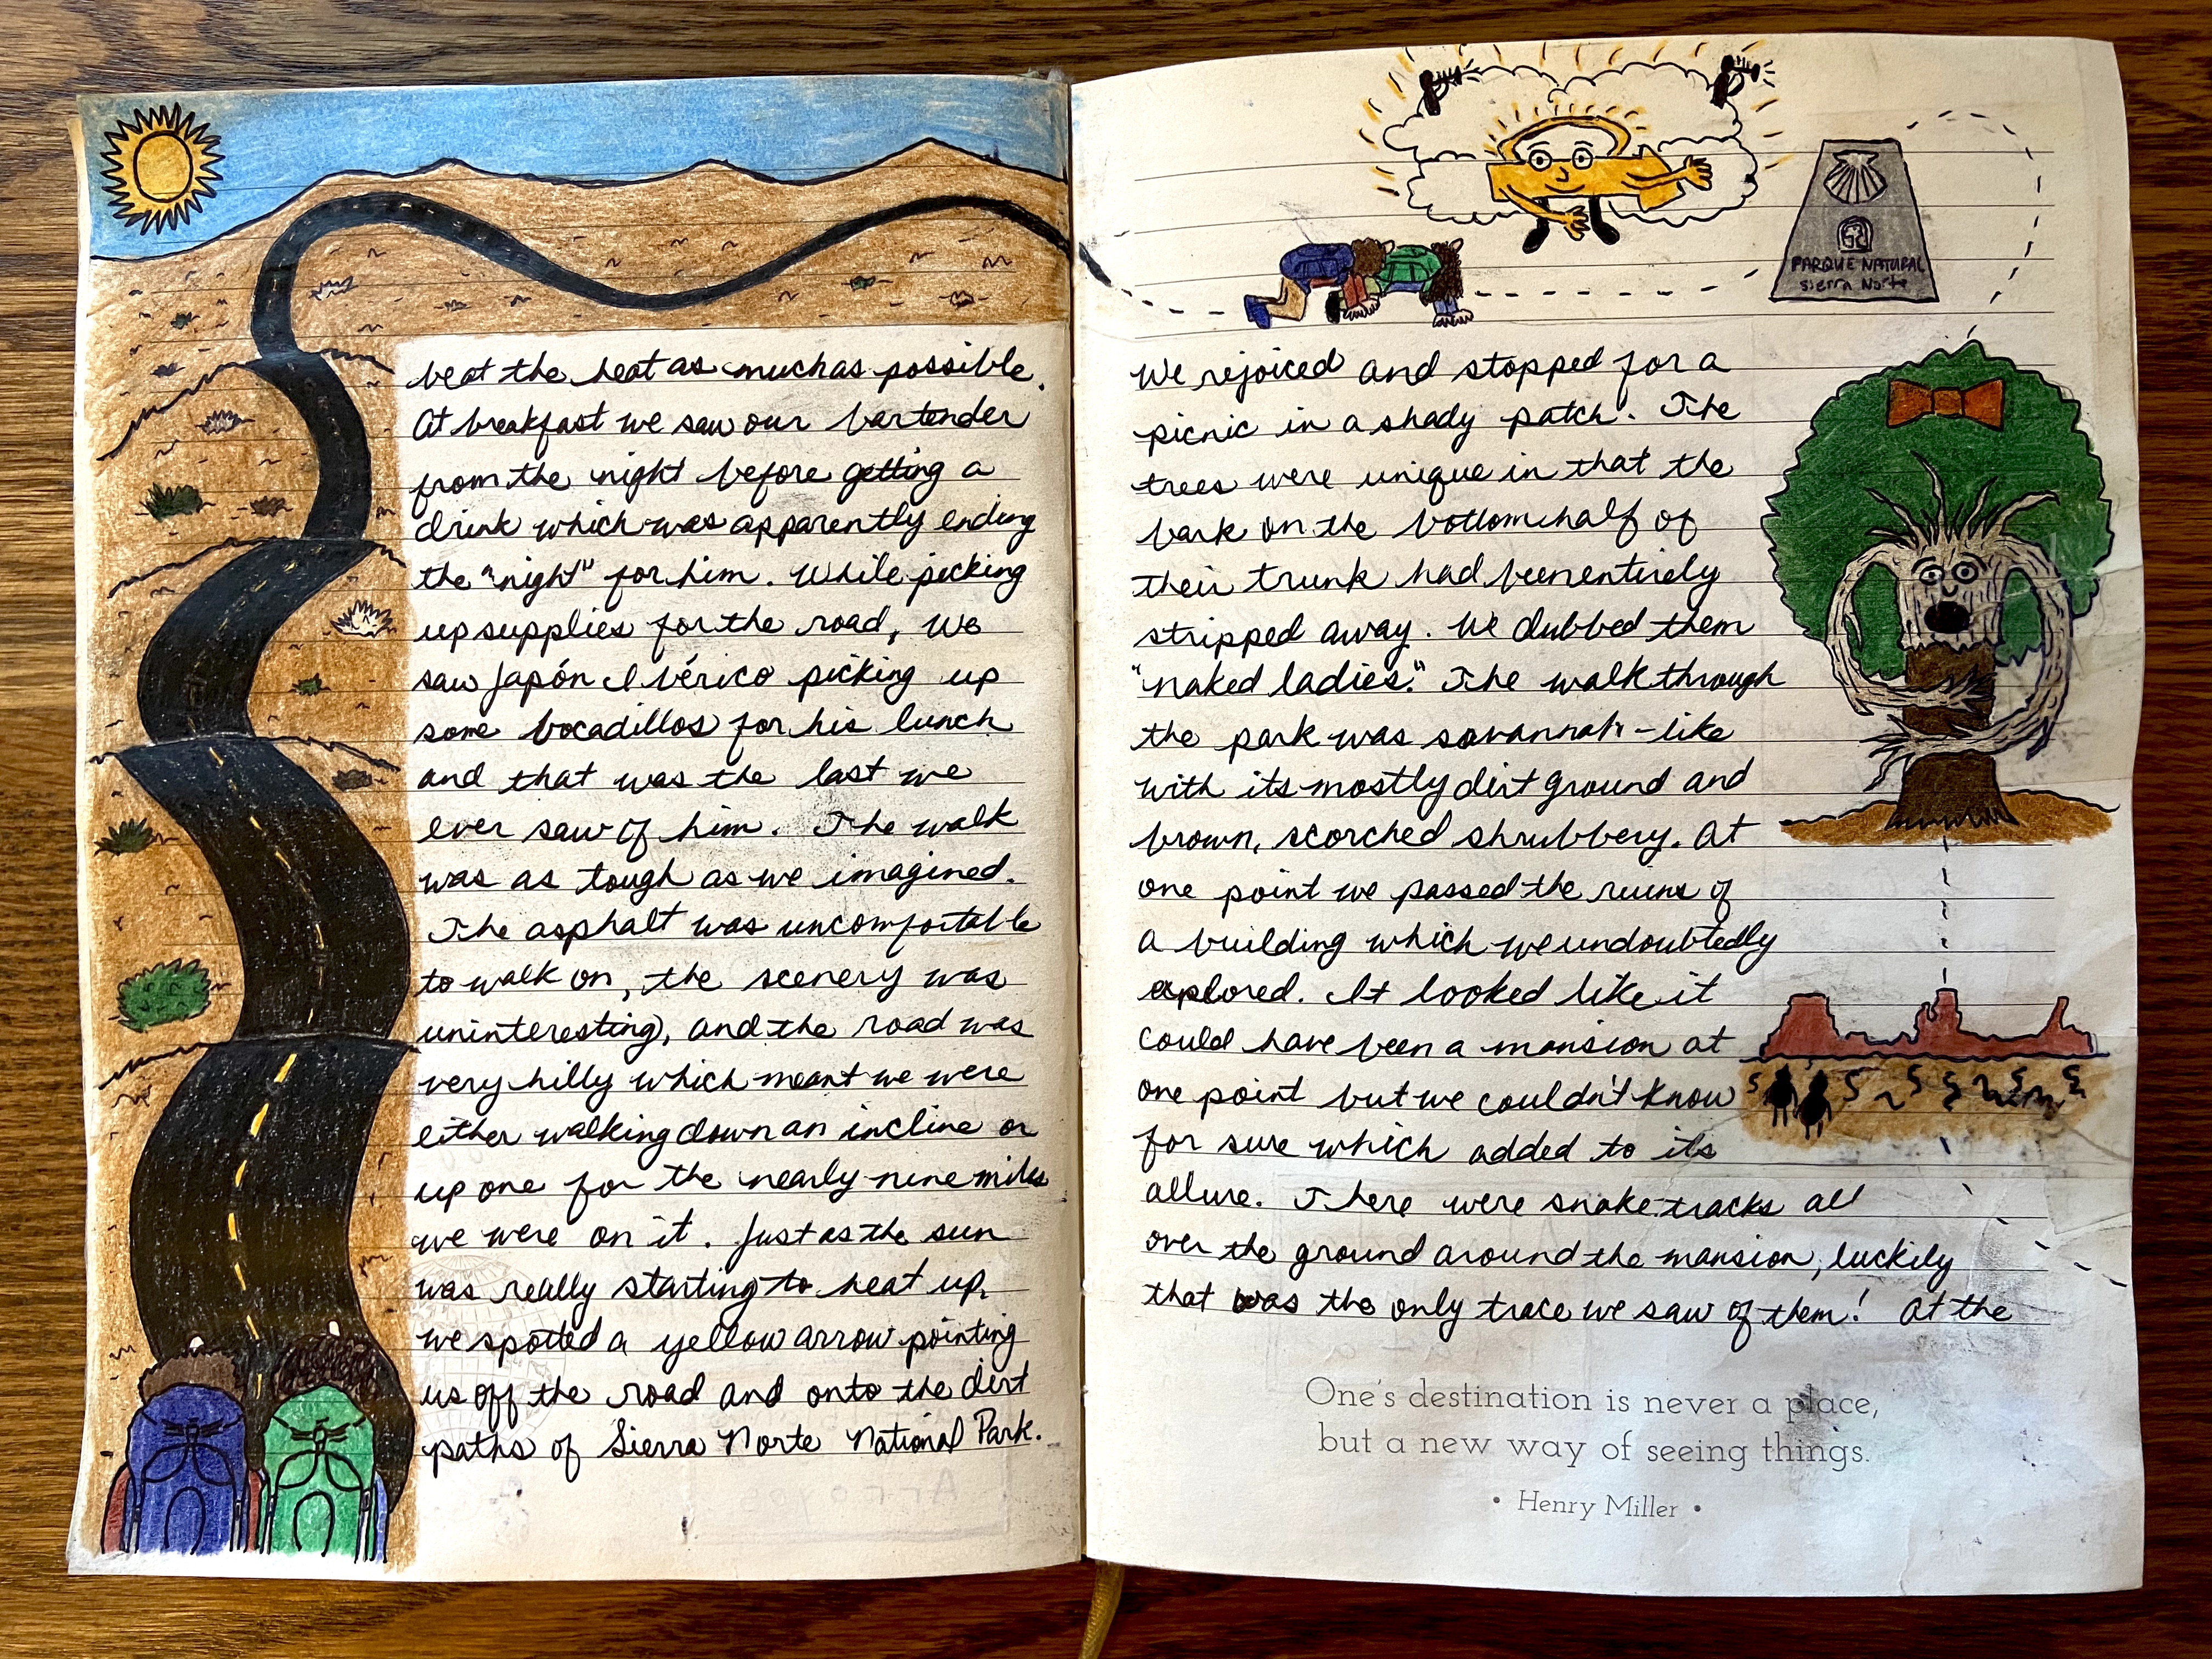 beat the heat as much as possible.
At breakfast we saw our bartender
from the night before getting a
drink which was apparently ending
the "night" for him. While picking
up supplies for the road, we
saw Japón Ibérico picking up
some bocadillos for his lunch
and that was the last we
ever saw of him. The walk
was as tough as we imagined.
The asphalt was uncomfortable
to walk on, the scenery was
uninteresting, and the road was
very hilly which meant we were
either walking down an incline or
up one for the nearly nine miles
we were on it. Just as the sun
was really starting to heat up,
we spotted a yellow arrow pointing
us off the road and onto the dirt
paths of Sierra Norte National Park.
PARQUE NATURAL
Sierra Norte
We rejoiced and stopped for a
picnic in a shady patch. The
trees were unique in that the
bark on the bottom half of
their trunk had been entirely
stripped away. We dubbed them
"naked ladies." The walk through
the park was savannah-like
with its mostly dirt ground and
brown, scorched shrubbery. At
one point we passed the ruins of
a building which we undoubtedly
explored. It looked like it
could have been a mansion at
one point but we couldn't know
for sure which added to its
allure. There were snake tracks all
over the ground around the mansion, luckily
that was the only trace we saw of them! At the
One's destination is never a place,
but a new way of seeing things.
• Henry Miller •